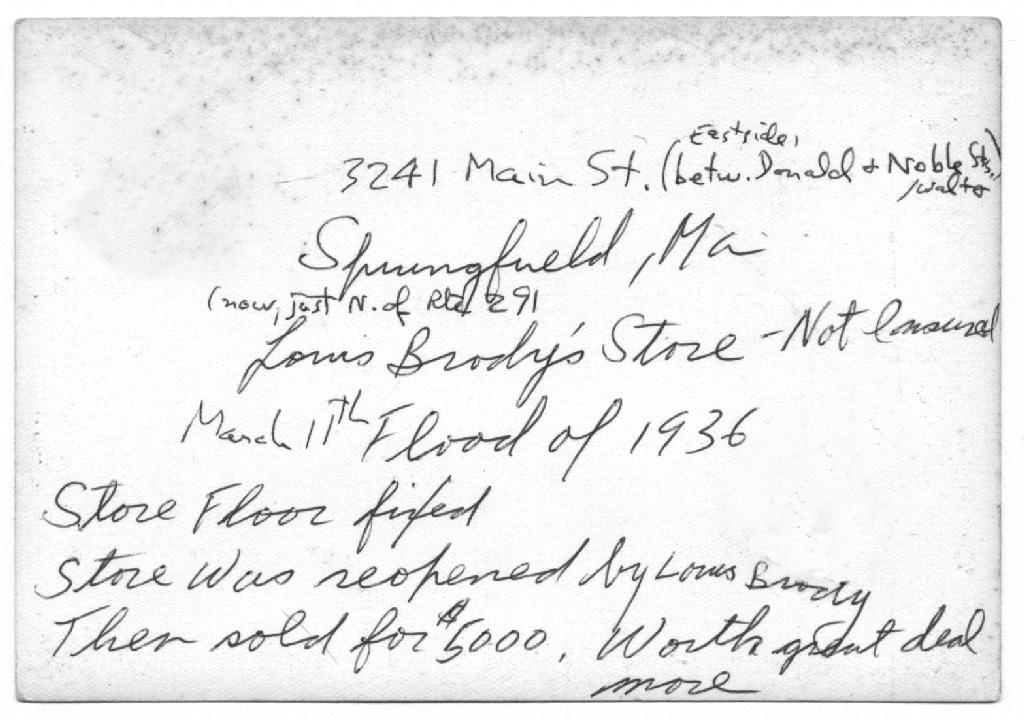 Eastside,
3241 Main St. (betw. Donald + Noble Sts.,)
Springfield, Ma
(now, just N. of Rte 291
Louis Brody's Store - Not Insured
March 11th Flood of 1936
Store Floor fixed
Store Was reopened by Louis Brody
Then sold for $5000. Worth great deal
more